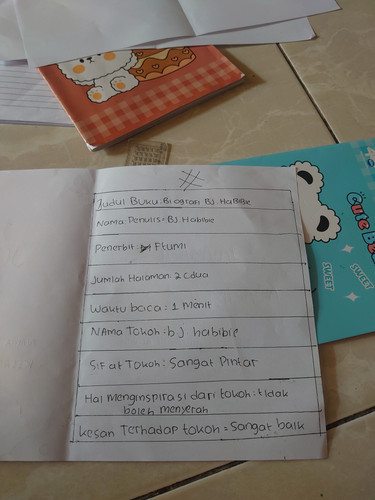 Judul Buku: Biografi BJ. HaBiBie
Nama: Penulis = BJ. Habibie
Penerbit: Ftumi
Jumlah Halaman: 2 Cdua
Waktu baca: 1 Menit
NAma Tokoh: bj habibie
Sifat Tokoh: Sangat Pintar
Hal menginspirasi dari tokoh. tidak
boleh menyerah
Kesan Terhadap tokoh = Sangat baik
SWEET
SWEET